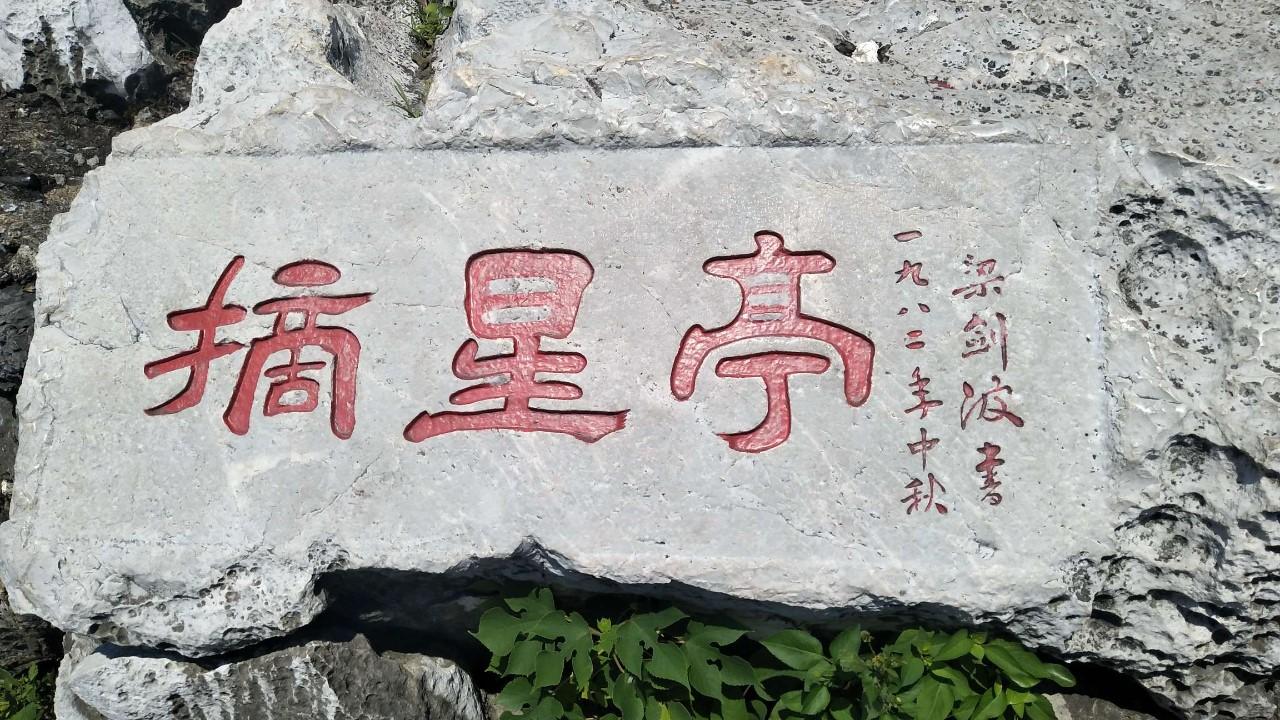 摘星亭
一九八二年中秋
梁剑波书